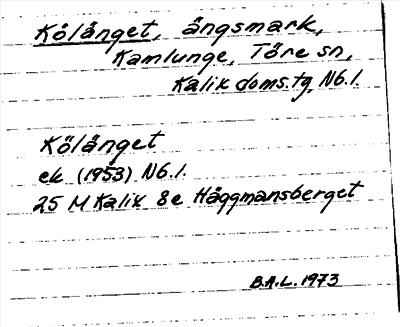 Kölänget, ängsmark,
Kamlunge, Töre sn,
Kalix doms.tg, Nb.l.
Kölänget
ek (1953) Nb.l.
25 M Kalix 8e Häggmansberget
B.A.L. 1973